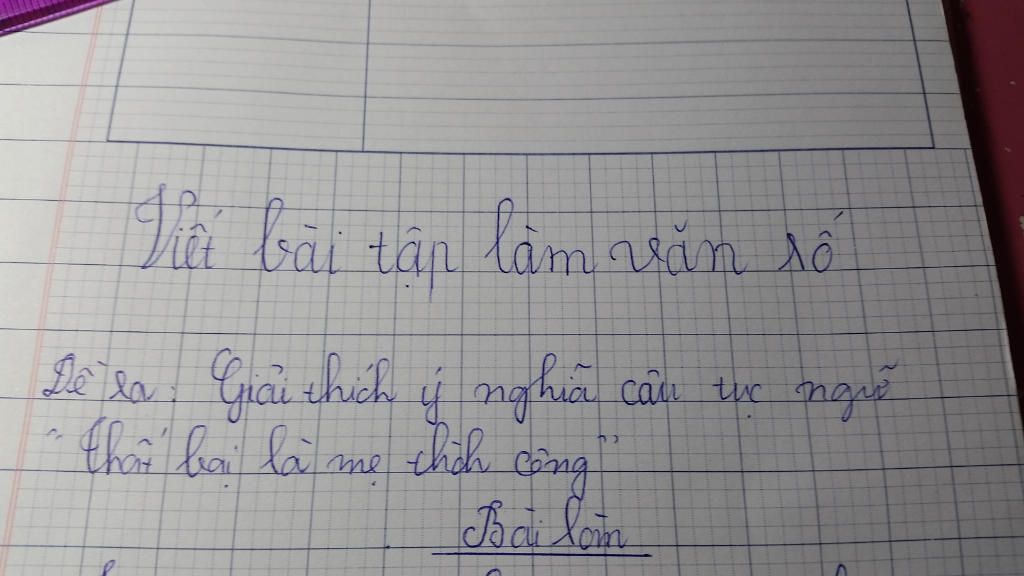 Viết bài tập làm văn số
Đề ra: Giải thích ý nghĩa câu tục ngữ
"Thất bại là mẹ thành công"
Bài làm